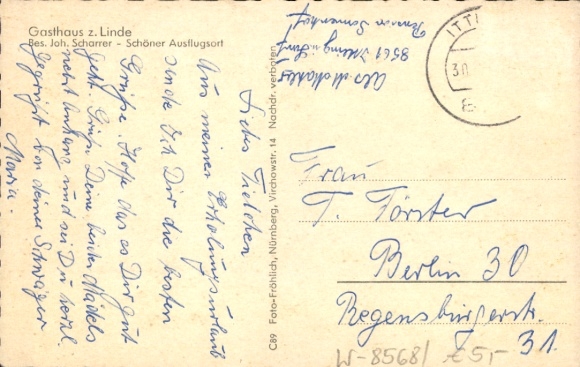 Gasthaus z. Linde
Bes. Joh. Scharrer - Schöner Ausflugsort
Liebes
Aus meinem Erholungsurlaub
sende ich Dir die besten
Grüße. Hoffe das es Dir gut
geht. Grüße Deine beiden Mädels
und sei Du herzl
gegrüßt von deiner
Maria.
C89 Foto-Fröhlich, Nürnberg, Virchowstr. 14 Nachdr. verboten
8561
Pension
ITT
30.
Frau
T. Förster
Berlin 30
Regensburgerstr.
31.
W-8568/ € 5,-